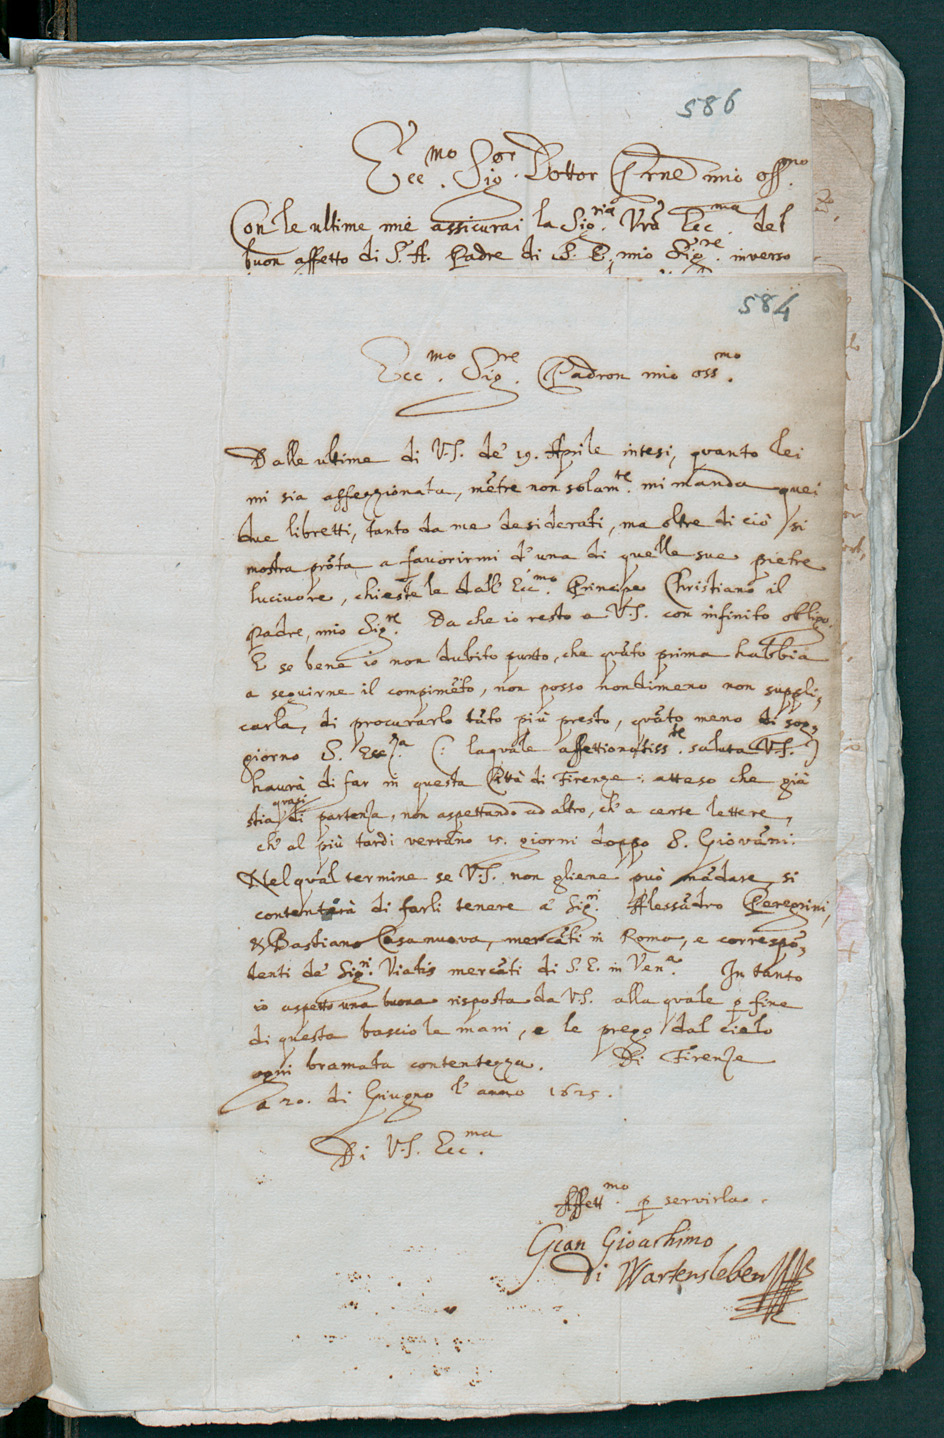 586
Ecc.mo Sig.re Dottor Prne mio oss.mo
Con le ultime mie assicurai la Sig.ria Vrã Ecc.ma del
buon affetto di S. A. Padre di S. E., mio Sig.re inverso
584
Ecc.mo Sig.re Padron mio oss.mo
Dalle ultime di V.S. de' 19. Aprile intesi, quanto lei
mi sia affezzionata, mẽtre non solam.te mi manda quei
due libretti, tanto da me desiderati, ma oltre di ciò si
mostra prõta a favorirmi d'una di quelle sue pietre
lucivore, chiestele dall' Ecc.mo Principe Christiano il
Padre, mio Sig.re Da che io resto a V.S. con infinito obligo.
E se bene io non dubito punto, che quãto prima habbia
a seguirne il compimẽto, non posso nondimeno non suppli,
carla, di procurarlo tãto più presto, quãto meno di sog,
giorno S. Ecc.za (: laquale affettionatiss.te saluta V.S. :)
haurà di far in questa Città di Firenze: atteso che già
stia quasi di partenza, non aspettando ad altro, ch' a certe lettere,
ch' al più tardi verrãno 15. giorni doppo S. Giovãni.
Nel qual termine se V.S. non gliene può mãdare, si
contenterà di farli tenere a' Sig.ri Alessãdro Peregrini,
& Bastiano Casanuova, mercãti in Roma, e correspõ,
denti de' Sig.ri Viatis mercãti di S. E. in Ven.a In tanto
io aspetto una buona risposta da V.S. alla quale p fine
di questa bascio le mani, e le prego dal cielo
ogni bramata contentezza. Di Firenze
a 20. di Giugno l' anno 1625.
Di V.S. Ecc.ma
Affett.mo p servirla.
Gian Gioachimo
di Wartensleben